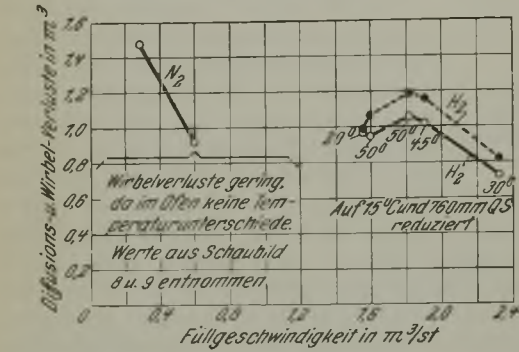 Diffusions-u. Wirbel-Verluste in m³
1,6
1,4
1,2
1,0
0,8
0,6
0,4
0,2
N₂
H₂
H₂
20°
50°
50°
45°
30°
Wirbelverluste gering,
da im Ofen keine Tem-
peraturunterschiede.
Werte aus Schaubild
8 u. 9 entnommen
Auf 15°C und 760mm QS
reduziert
0
0,4
0,8
1,2
1,6
2,0
2,4
Füllgeschwindigkeit in m³/st